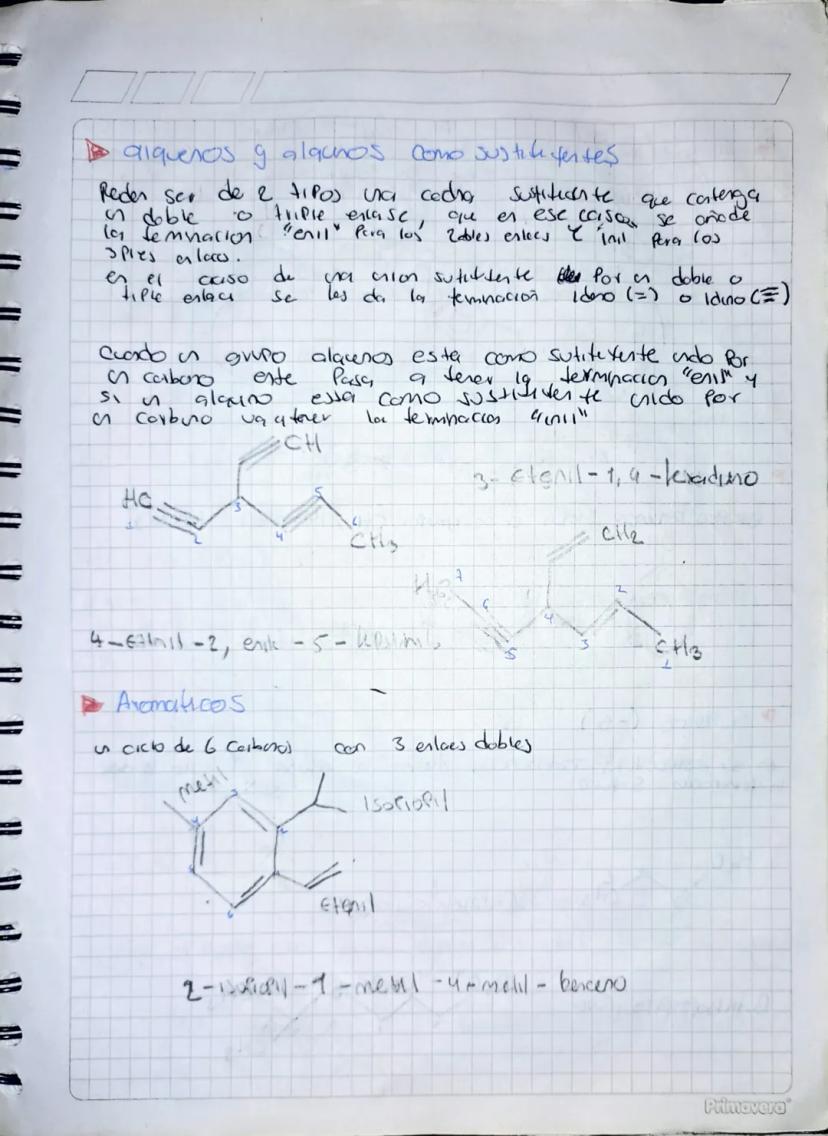 alquenos y alquinos como sustituyentes
Peden ser de 2 tipos una cadna sustituente que contenga
un doble o triple enlase, que en ese casoa se añade
la terminacion "enil" Para los 2obles enlaces Y inil Para los
3ples enlaces.
en el caso de una union sutituente Por un doble o
tiple enlace se les da la terminación Ideno (=) o Idino (≡)
Cuando un grupo alquenos esta como sutituyente unido Por
un carbono este Pasa a tener la terminacion "enil" y
si un alquino essa como sustituyente unido por
un carbono va a tener la terminacion "inil"
CH
3- Etenil-1,4-hexadiino
HC
1 2 3 4 5 6
CH3
CH2
7 6 5 4 3 2 1
CH3
4-Etenil-2,
-5-
Aromaticos
un ciclo de 6 Carbonos con 3 enlaes dobles
metil
Isopropil
Etenil
2-
-1-
-4-metil-benceno
Primavera